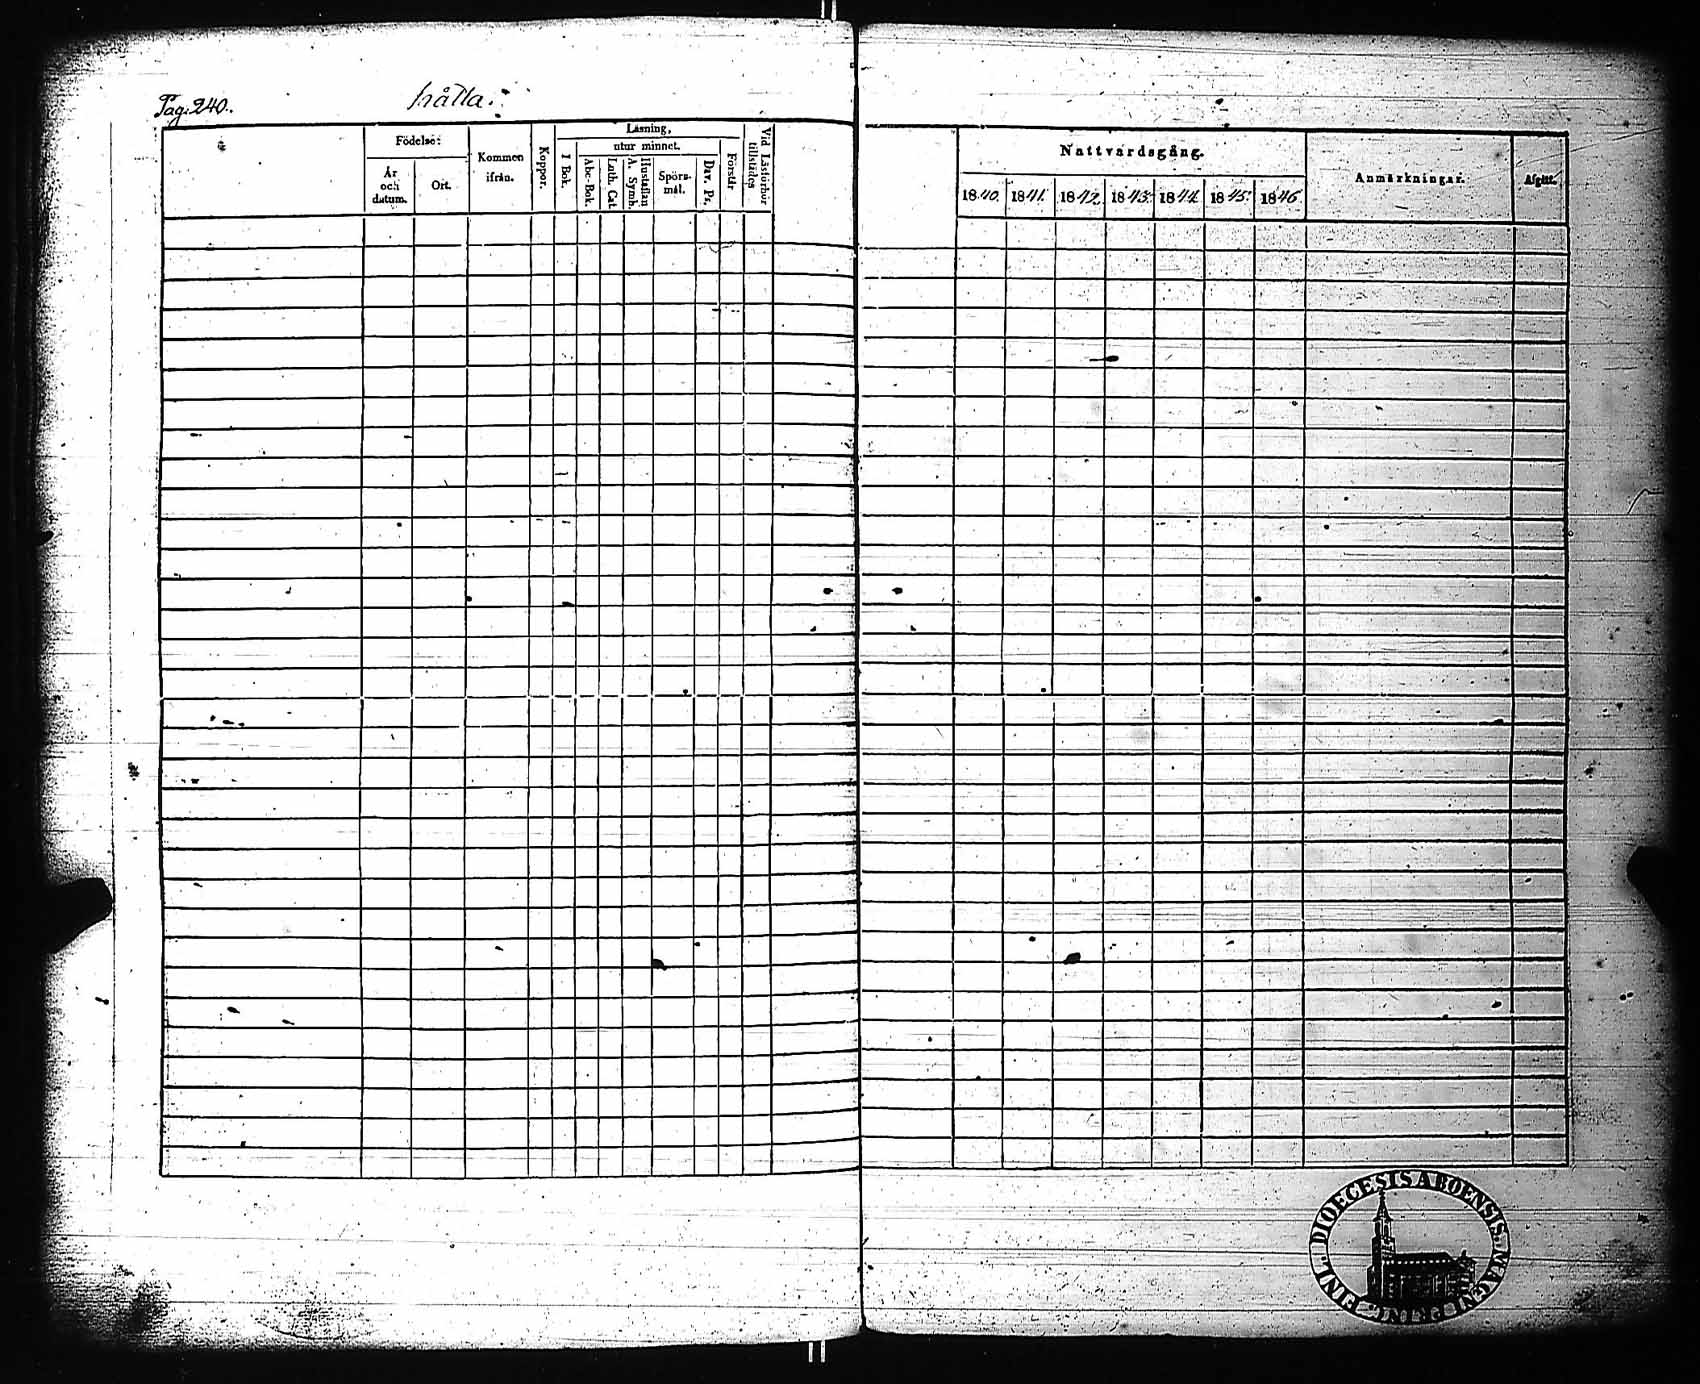 Pag: 240.
Födelse:
År och datum.
Ort.
Kommen ifrån.
Koppor.
Läsning,
I Bok.
utur minnet.
Abc-Bok.
Luth. Cat.
Hustaflan A. Symb.
Spörsmål.
Dav. Ps.
Förstår
Vid Läsförhör tillstädes
Nattvardsgång.
1840. 1841. 1842. 1843. 1844. 1845. 1846.
Anmärkningar.
Afgått.
DIOECESIS ABOENSIS. MAGNI PRINC. FINL.